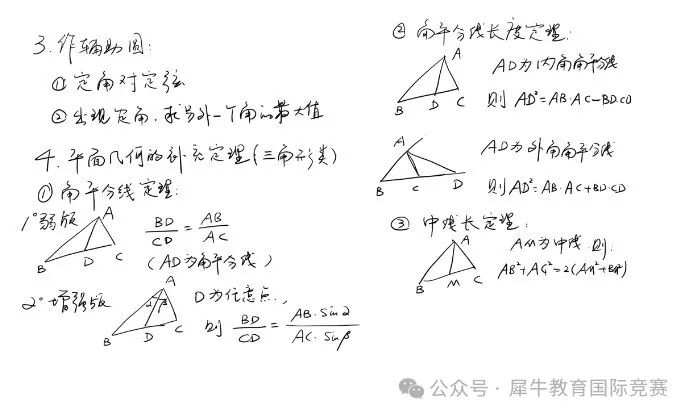 3. 作辅助圆:
① 定角对定弦
② 出现定角,求另外一个角的最大值
4. 平面几何的补充定理(三角形类)
① 角平分线定理:
1°弱版
A
B
D
C
BD/CD = AB/AC
(AD为角平分线)
2°增强版
A
α
β
B
D
C
D为任意点,
则 BD/CD = AB·sinα/AC·sinβ
② 角平分线长度定理:
A
B
D
C
AD为内角角平分线
则 AD²=AB·AC-BD·CD
A
B
C
D
AD为外角角平分线
则 AD²=AB·AC+BD·CD
③ 中线长定理:
A
B
M
C
AM为中线,则:
AB²+AC²=2(AM²+BM²)
公众号·犀牛教育国际竞赛